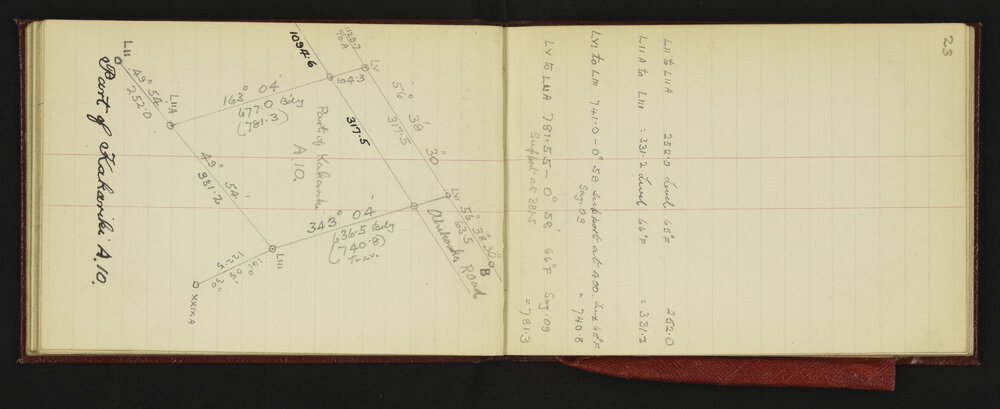 23
LII to LIIA 252.0 Level 65°F 252.0
LIIA to LIII = 331.2 Level 66°F = 331.2
LVI to LIII 741.0 - 0° 59 support at 400. Temp 65°F
Sag. 09 = 740.8
LV to LIIA 781.55 - 0° 58' 66°F Sag. 09
Support at 38.5 = 781.3
LII
49° 54'
252.0
LIIA
49° 54'
331.2
LIII
XXIXA
163° 04'
677.0 Bdy
(781.3)
343° 04'
636.5 Bdy
(740.8)
1129.7
to A
LV
1043
1094.6
317.5
56° 38' 30"
317.5
LVI
56° 38' 30"
63.5
B
Road
Part of Kakariki
A.10.
Part of Kakariki A.10.